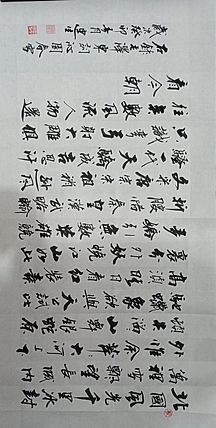 北國風光千里冰封
萬里雪飄望長城内
外惟餘莽莽大河上下
頓失滔滔山舞銀蛇原
馳蠟象欲與天公試比
高須晴日看紅裝素
裹分外妖嬈江山如此多
嬌引無數英雄競
折腰惜秦皇漢武略輸
文采唐宗宋祖稍遜風
騷一代天驕成吉思汗
只識彎弓射大雕俱
往矣數風流人物還
看今朝
右錄毛澤東詞沁園春雪
歲次癸卯年